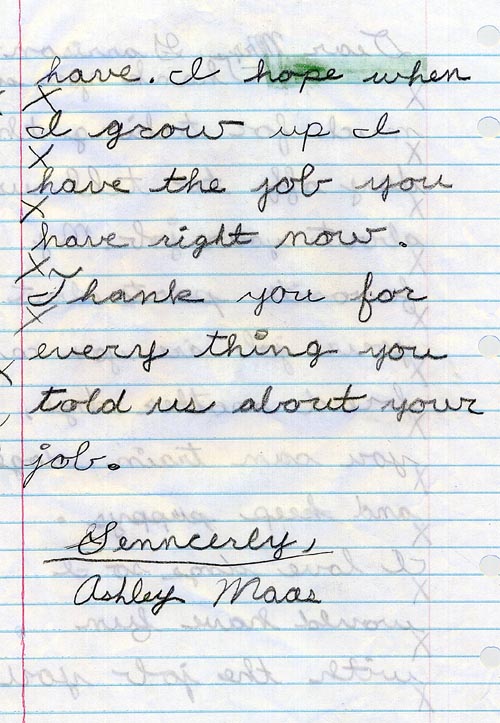 have. I hope when
I grow up I
have the job you
have right now.
Thank you for
every thing you
told us about your
job.
Senncerly,
Ashley Maas